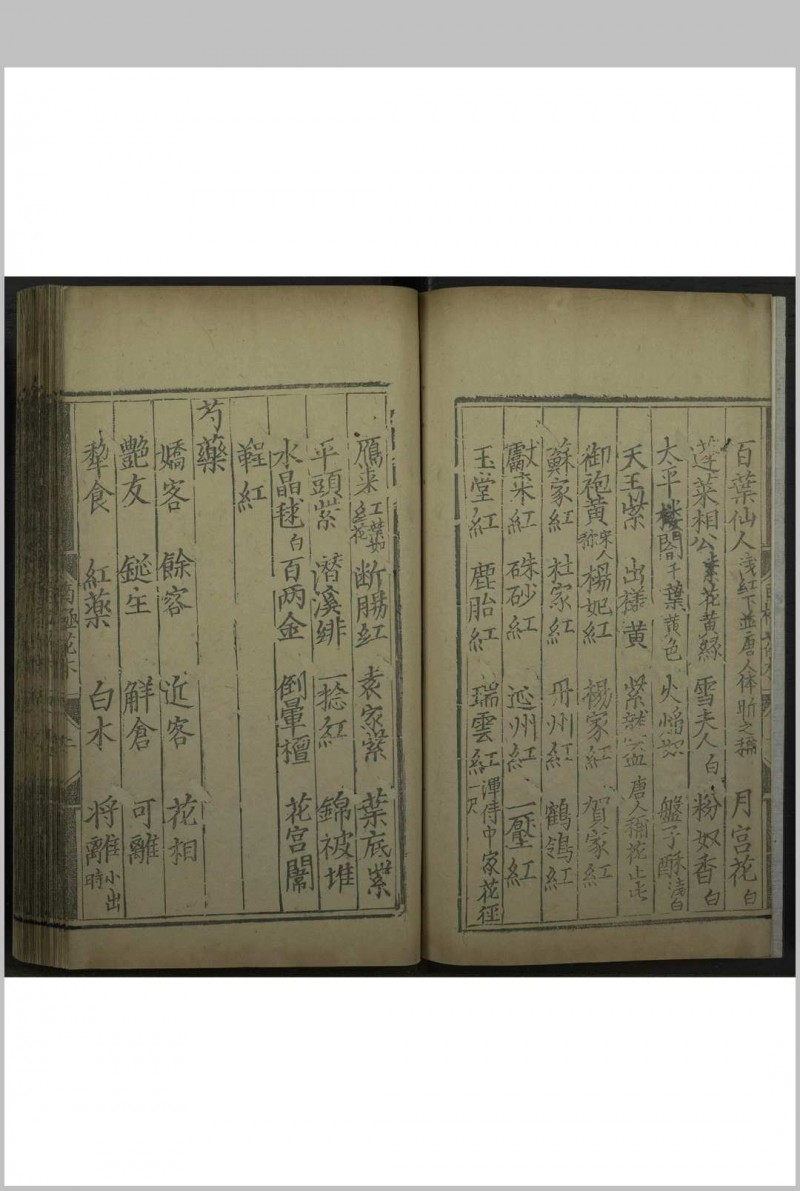 百葉仙人 淺紅下並唐人 之稱 月宮花 白
蓬萊相公 黃緑 雪夫人 白 粉奴香 白
太平樓閣 千葉黄色 盤子酥 淺白
天王紫 出様黄 紫 唐人稱花止此
御袍黄 宋人称 楊妃紅 楊家紅 賀家紅
蘇家紅 杜家紅 丹州紅 鶴鴒紅
獻来紅 硃砂紅 延州紅 一壓紅
玉堂紅 鹿胎紅 瑞雲紅 渾侍中家花徑一尺
鴈来紅 断腸紅 袁家紫 葉底紫
平頭紫 潛溪緋 一捻紅 錦被堆
水晶毬 白 百两金 倒暈檀 花宮鬧
鞓紅
芍藥
嬌客 餘容 近客 花相
艷友 鋋 觧倉 可離
犂食 紅藥 白木 将離 小出時